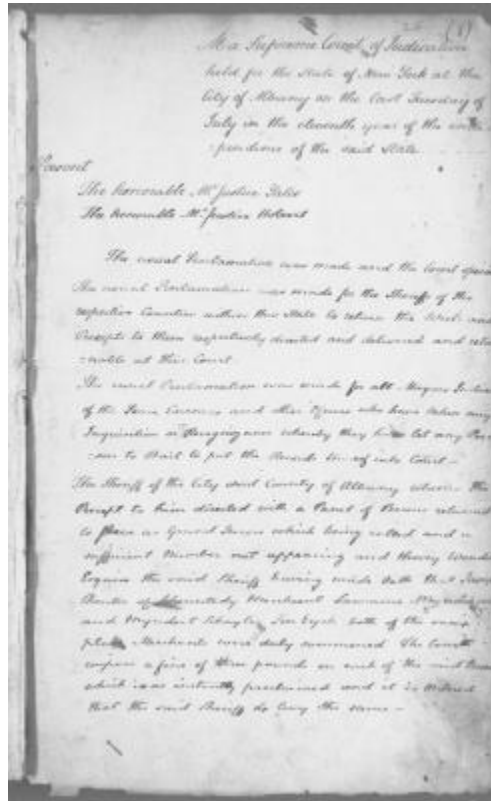 (1)
At a Supreme Court of Judicature
held for the State of New York at the
City of Albany on the last Tuesday of
July in the eleventh year of the inde
-pendence of the said State
Present
The honorable Mr Justice Yates
The honorable Mr Justice Hobart
The usual Proclamation was made and the Court opened
The usual Proclamation was made for the Sheriffs of the
respective Counties within this State to return the Writs and
Precepts to them respectively directed and delivered and retur
-nable at this Court
The usual Proclamation was made for all Mayors
of the Peace Coroners and other Officers who have taken any
Inquisition or Recognizance whereby they have let any Per
-son to Bail to put the Records thereof into Court —
The Sheriff of the City and County of Albany returns the
Precept to him directed with a Panel of Persons returned
to serve as Grand Jurors which being called and a
sufficient Number not appearing and
Esquire the said Sheriff having made Oath that
of Merchant Lawrence
and Myndert Schuyler Ten Eyck both of the same
place Merchants were duly summoned The Court
impose a fine of three pounds on each of the said
which is instantly proclaimed and it is Ordered
that the said Sheriff do levy the same —